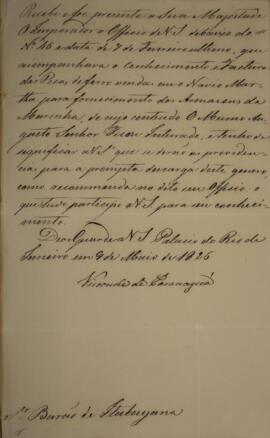 Recebi e foi presente a Sua Magestade
O Imperador o Officio de V.S. debaixo do
Nº 45 e data de 7 de Fevereiro ultimo, que
acompanhava o Conhecimento e Factura
das Pecas de ferro vindas em o Navio Mar-
tha para fornecimento dos Armazens da
Marinha, de cujo contheudo O Mesmo Au-
gusto Senhor Ficou Inteirado, e tenho de
significar a V.S.ª que se derão as providen-
cias para a prompta descarga deste genero,
como recommenda no dito seu Officio. o
que tudo participo a V.S. para seu conheci-
mento.
Deos Guarde a V.S. Palacio do Rio de
Janeiro em 9 de Maio de 1826
Visconde de Paranaguá
Sr. Barão de Itabayana